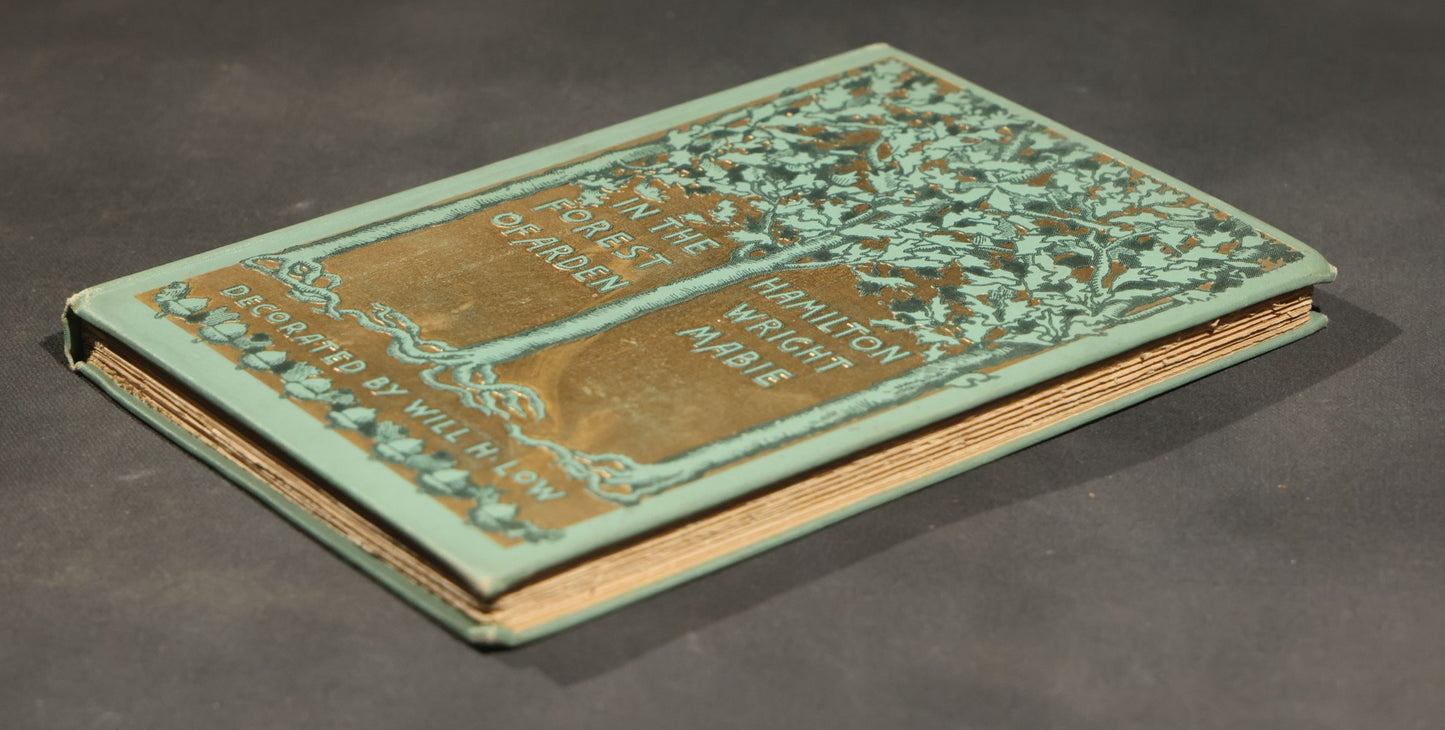 IN THE
FOREST
OF ARDEN
HAMILTON
WRIGHT
MABIE
DECORATED BY WILL H. LOW